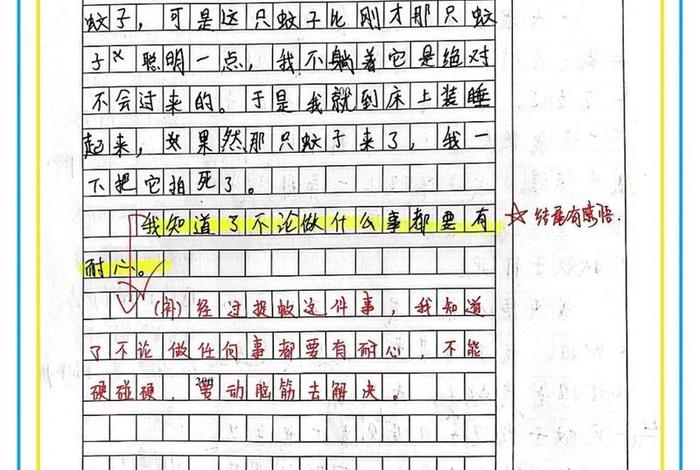 蚊子，可是这只蚊子比刚才那只蚊
子聪明一点，我不躺着它是绝对
不会过来的。于是我就到床上装睡
起来，如果然那只蚊子来了，我一
下把它拍死了。
我知道了不论做什么事都要有
耐心。
☆结尾有感悟.
(补)经过捉蚊这件事，我知道
了不论做任何事都要有耐心，不能
硬碰硬，要动脑筋去解决。